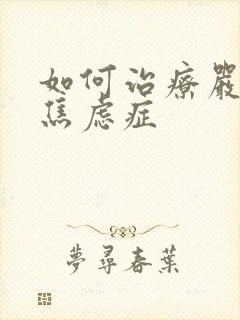 如何治療嚴
焦虑症
夢尋春葉